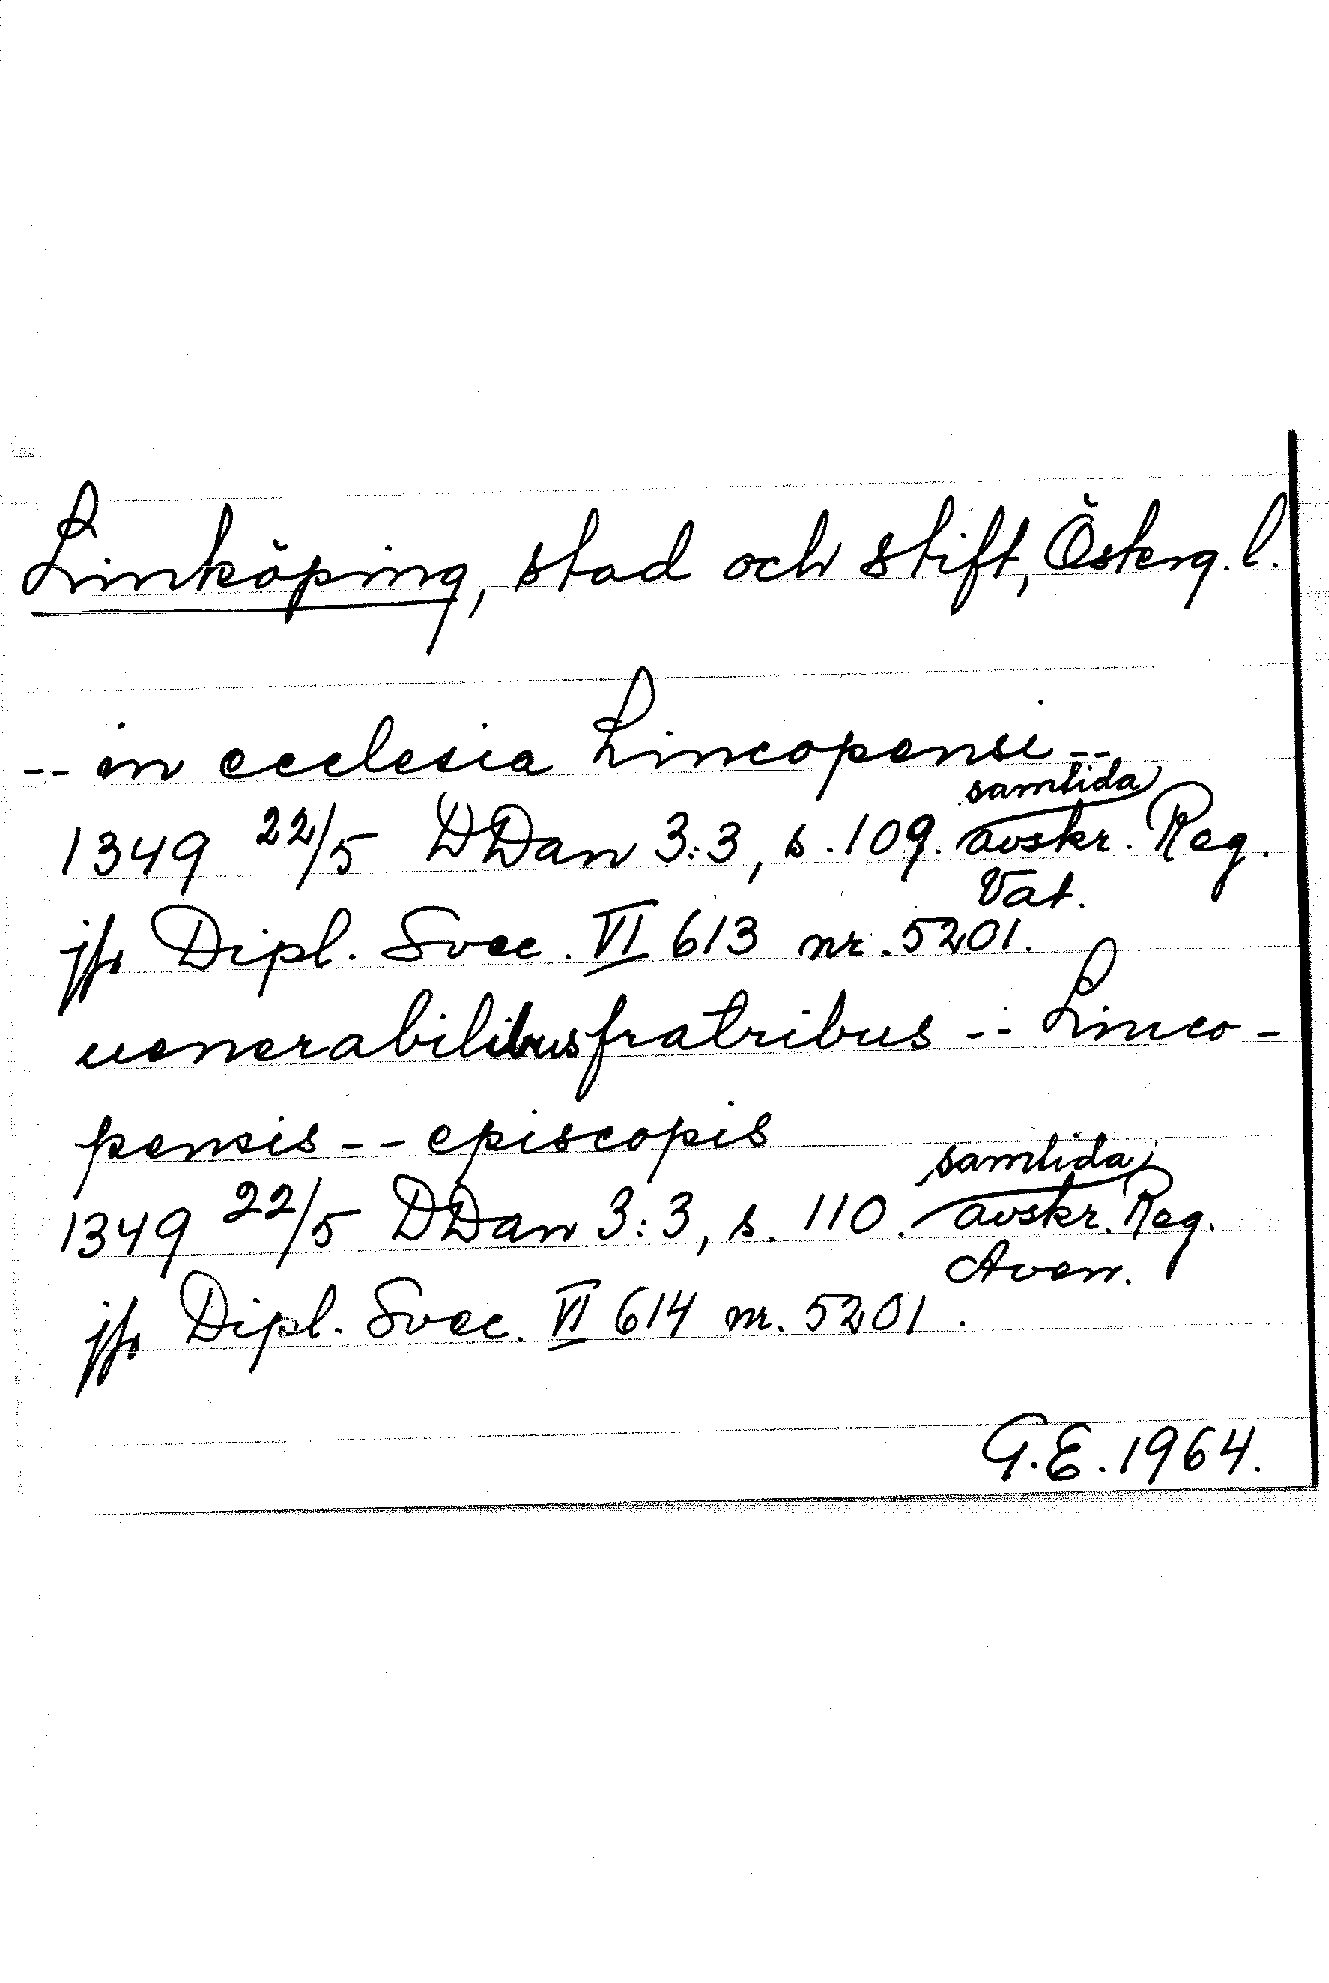 Linköping, stad och stift, Österg. l.
-- in ecclesia Lincopensi --
1349 22/5 DDan 3:3, s. 109. samtida avskr. Reg. Vat.
jfr Dipl. Svec. VI 613 nr. 5201.
uenerabilibus fratribus -- Linco-
pensis -- episcopis
1349 22/5 DDan 3:3, s. 110. samtida avskr. Reg. Aven.
jfr Dipl. Svec. VI 614 nr. 5201.
G.E. 1964.